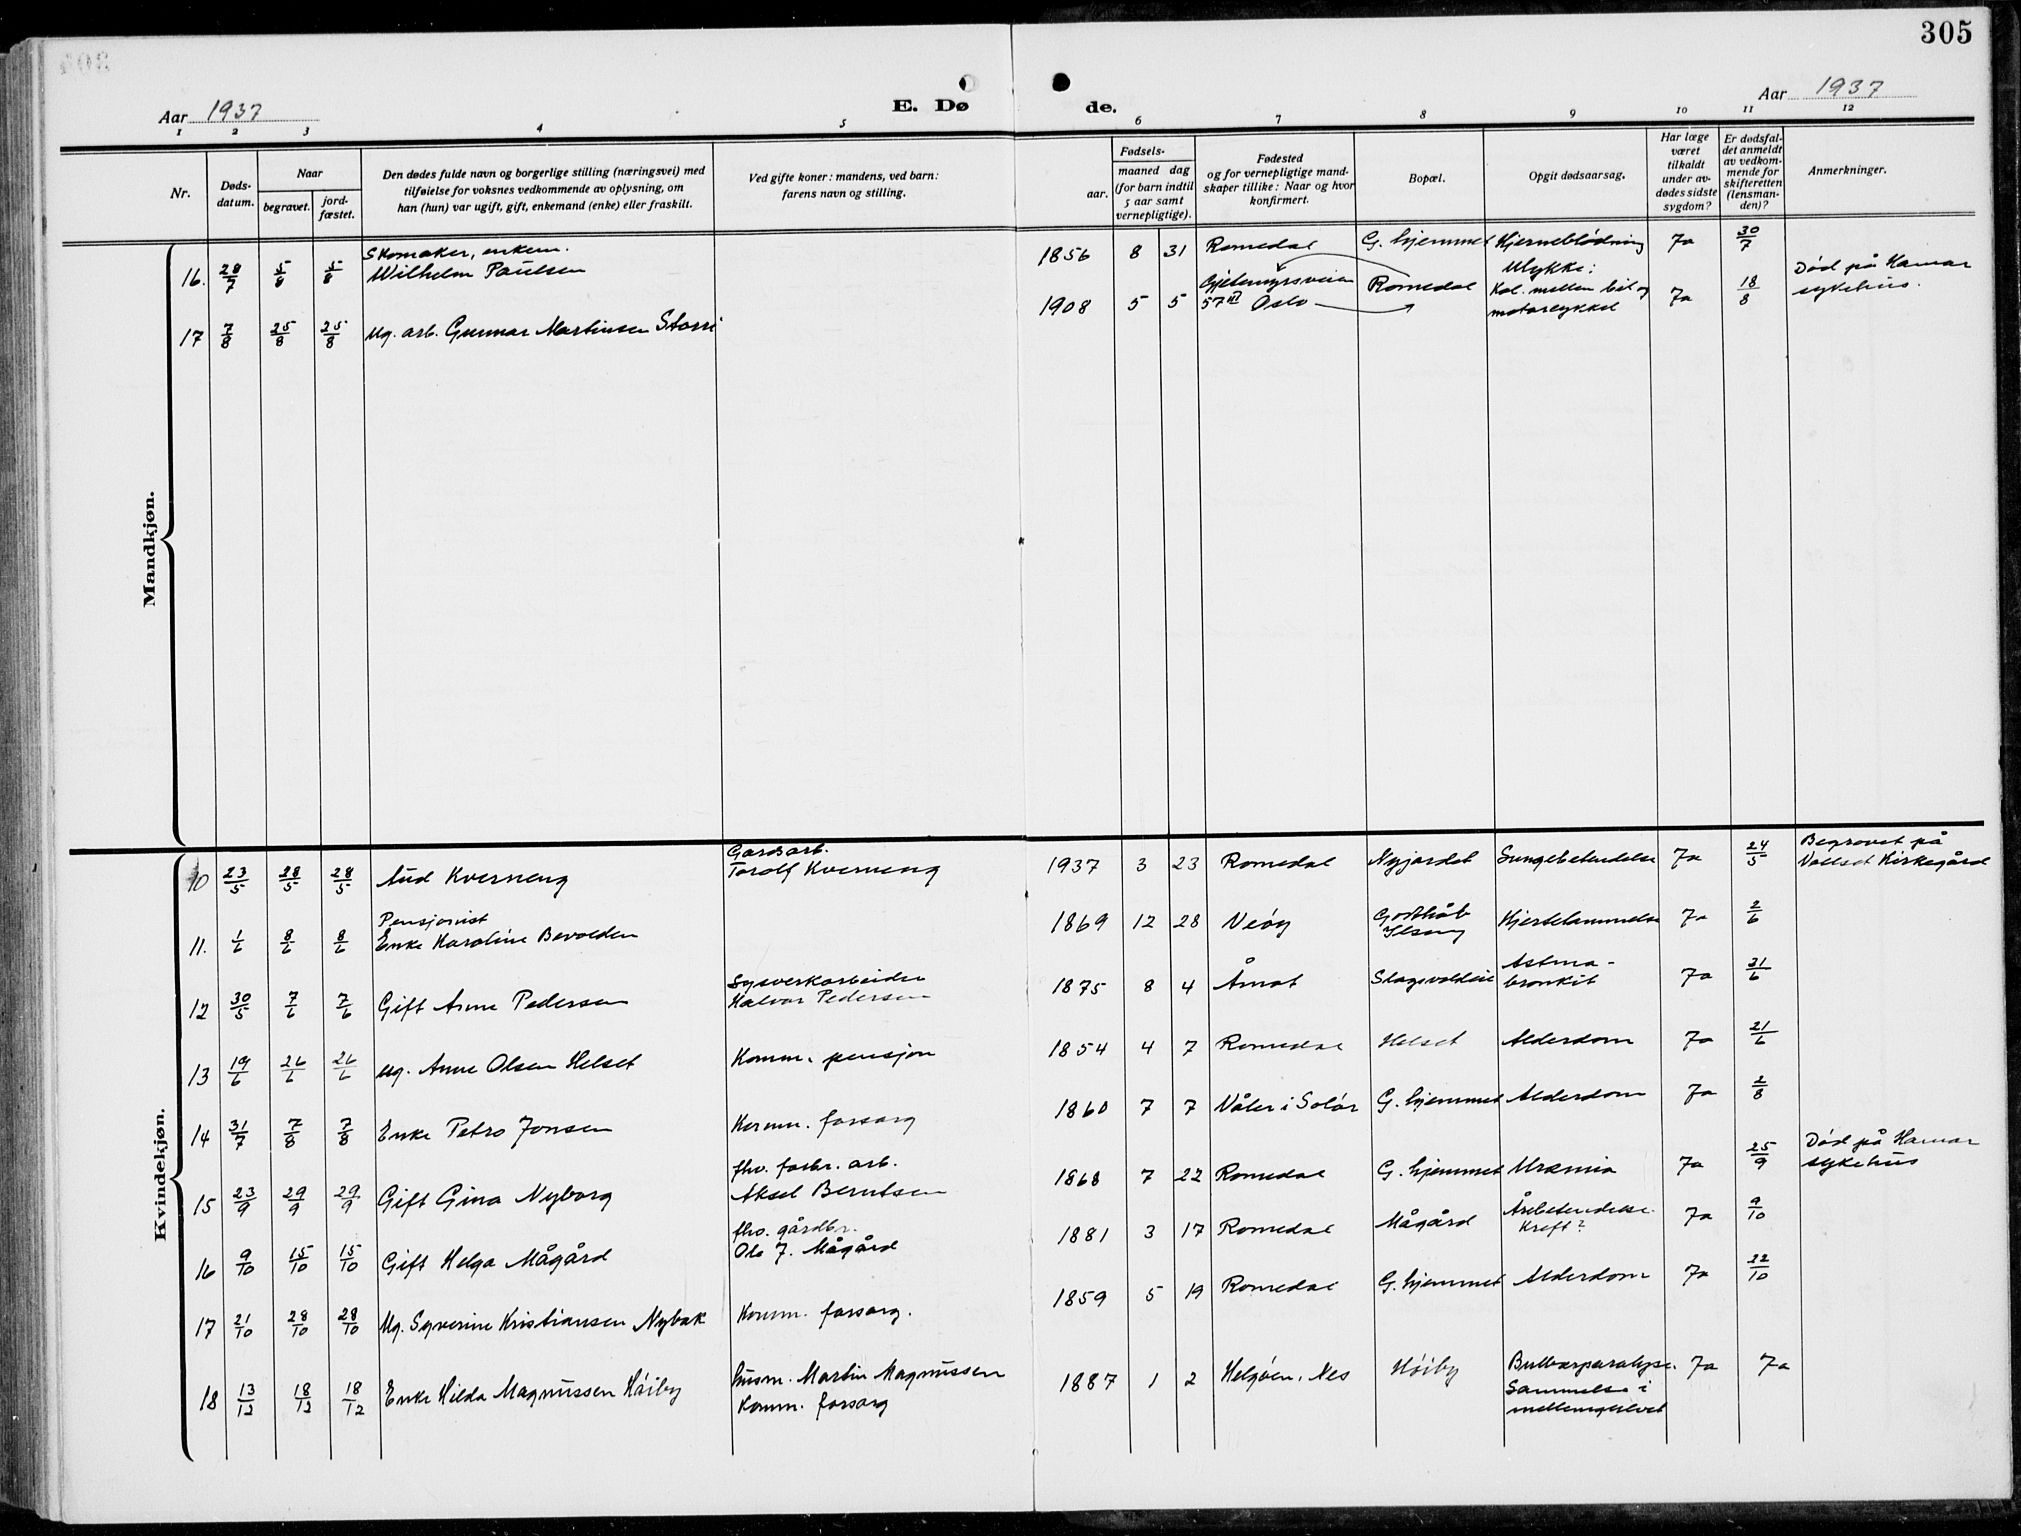 305
Aar 1937
E. Dø de.
Aar 1937
1 2 3 4 5 6 7 8 9 10 11 12
Nr.
Døds-
datum.
Naar
begravet.
jord-
fæstet.
Den dødes fulde navn og borgerlige stilling (næringsvei) med
tilføielse for voksnes vedkommende av oplysning, om
han (hun) var ugift, gift, enkemand (enke) eller fraskilt.
Ved gifte koner: mandens, ved barn:
farens navn og stilling.
Fødsels-
aar.
maaned dag
(for barn indtil
5 aar samt
vernepligtige).
Fødested
og for vernepligtige mand-
skaper tillike: Naar og hvor
konfirmert.
Bopæl.
Opgit dødsaarsag.
Har læge
været
tilkaldt
under av-
dødes sidste
sygdom?
Er dødsfal-
det anmeldt
av vedkom-
mende for
skifteretten
(lensman-
den)?
Anmerkninger.
Mandkjøn.
Skomaker, enkem.
16. 28/7 5/8 5/8 Wilhelm Paulsen 1856 8 31 Romedal G. hjemmet Hjerneblödning Ja 30/7
17 7/8 25/8 25/8 Ug. arb. Gunnar Martinsen Storri 1908 5 5 Gjetemyrsveien
57 VI Oslo Romedal Ulykke:
Kol. mellem bil og
motorsykkel Ja 18/8 Död på Hamar
sykehus.
Kvindekjøn.
10 23/5 28/5 28/5 Aud Kverneng Gardsarb.
Torolf Kverneng 1937 3 23 Romedal Nyjordet Lungebetendelse Ja 24/5 Begravet på
Vallset Kirkegård
Pensjonist
11. 1/6 8/6 8/6 Enke Karoline Bevolden 1869 12 28 Veöy Godthåb
Ilseng Hjertelammelse Ja 2/6
12 30/5 7/6 7/6 Gift Anne Pedersen Halvor Pedersen 1875 8 4 Åmot Slagsvoldeie Astma-
bronkit Ja 31/6
13 19/6 26/6 26/6 Ug. Anne Olsen Helset Komm. pensjon 1854 4 7 Romedal Helset Alderdom Ja 21/6
14 31/7 7/8 7/8 Enke Petra Jonsen Komm. forsorg 1860 7 7 Våler i Solör G. hjemmet Alderdom Ja 2/8
15 23/9 29/9 29/9 Gift Gina Nyborg fhv. forbr. arb.
Aksel Berntsen 1868 7 22 Romedal G. hjemmet Uræmia Ja 25/9 Död på Hamar
sykehus
16 9/10 15/10 15/10 Gift Helga Mågård fhv. gårdbr.
Ole J. Mågård 1881 3 17 Romedal Mågård Årebetendelse.
Kreft? Ja 9/10
17 21/10 28/10 28/10 Ug. Syverine Kristiansen Nybak Komm. forsorg. 1859 5 19 Romedal G. hjemmet Alderdom Ja 22/10
18 13/12 18/12 18/12 Enke Hilda Magnussen Höiby husm. Martin Magnussen
Komm. forsorg 1887 1 2 Helgöen, Nes Höiby Bulbærparalyse.
Lammelse i
mellemgulvet Ja Ja